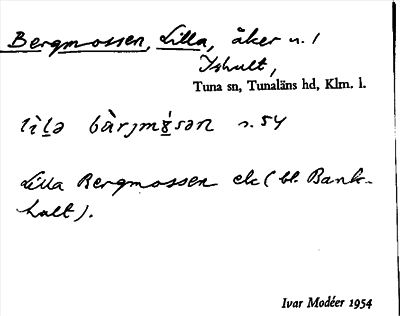 Bergmossen, Lilla, åker n. 1
Ishult,
Tuna sn, Tunaläns hd, Klm. l.
n. 54
Lilla Bergmossen ek (bl. Bank-
hult).
Ivar Modéer 1954